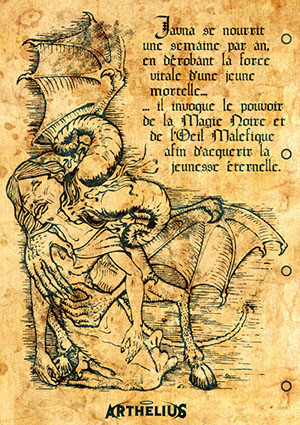 Javna se nourrit
une semaine par an,
en dérobant la force
vitale d'une jeune
mortelle...
... il invoque le pouvoir
de la Magie Noire et
de l'Oeil Malefique
afin d'acquerir la
jeunesse éternelle.
ARTHELIUS